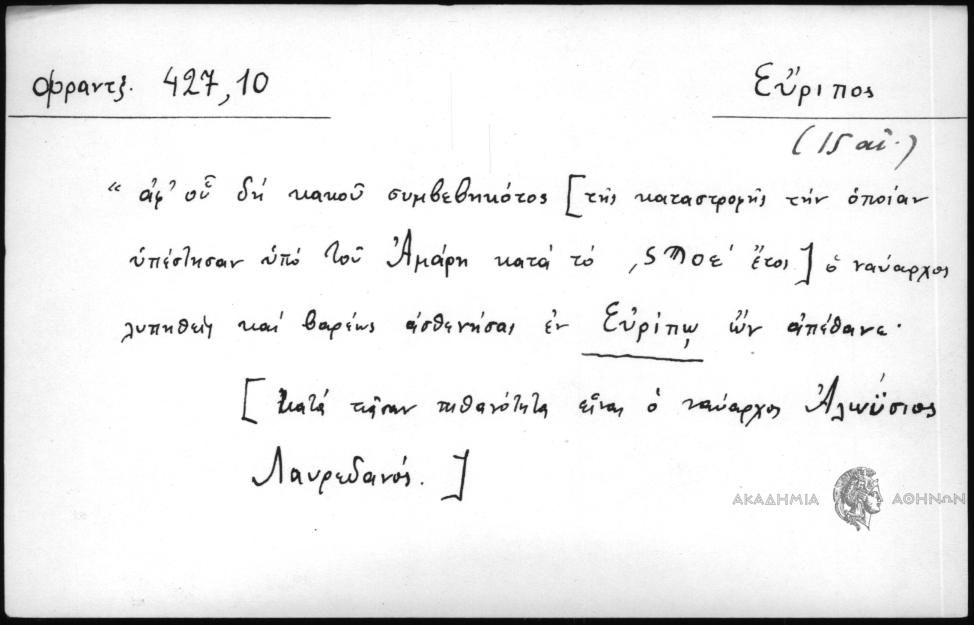 Φραντζ. 427,10
Εὔριπος
(15 αἰ.)
“ ἀφ’ οὗ δή κακοῦ συμβεβηκότος [τῆς καταστροφῆς τήν ὁποίαν
ὑπέστησαν ὑπό τοῦ Ἀμάρη κατά τό ͵ϛϠοε΄ ἔτος] ὁ ναύαρχος
λυπηθείς καί βαρέως ἀσθενήσας ἐν Εὐρίπῳ ὤν ἀπέθανε·
[κατά πᾶσαν πιθανότητα εἶναι ὁ ναύαρχος Ἀλωΰσιος
Λαυρεδανός.]
ΑΚΑΔΗΜΙΑ ΑΘΗΝΩΝ